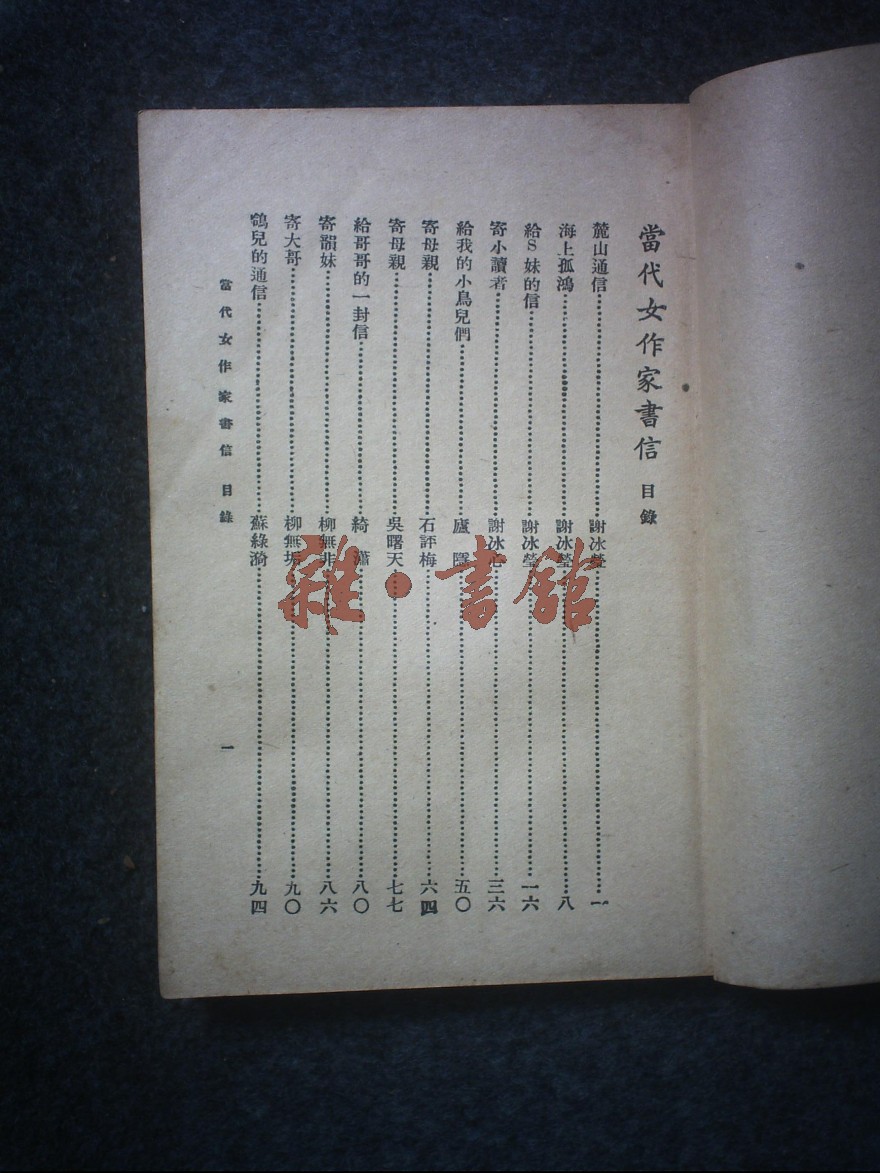 當代女作家書信 目錄
麓山通信……謝冰瑩……一
海上孤鴻……謝冰瑩……八
給S妹的信……謝冰瑩……一六
寄小讀者……謝冰心……三六
給我的小鳥兒們……廬隱……五〇
寄母親……石評梅……六四
寄母親……吳曙天……七七
給哥哥的一封信……綺瀟……八〇
寄韻妹……柳無非……八六
寄大哥……柳無垢……九〇
鴿兒的通信……蘇綠漪……九四
當代女作家書信 目錄
一
雜·書館